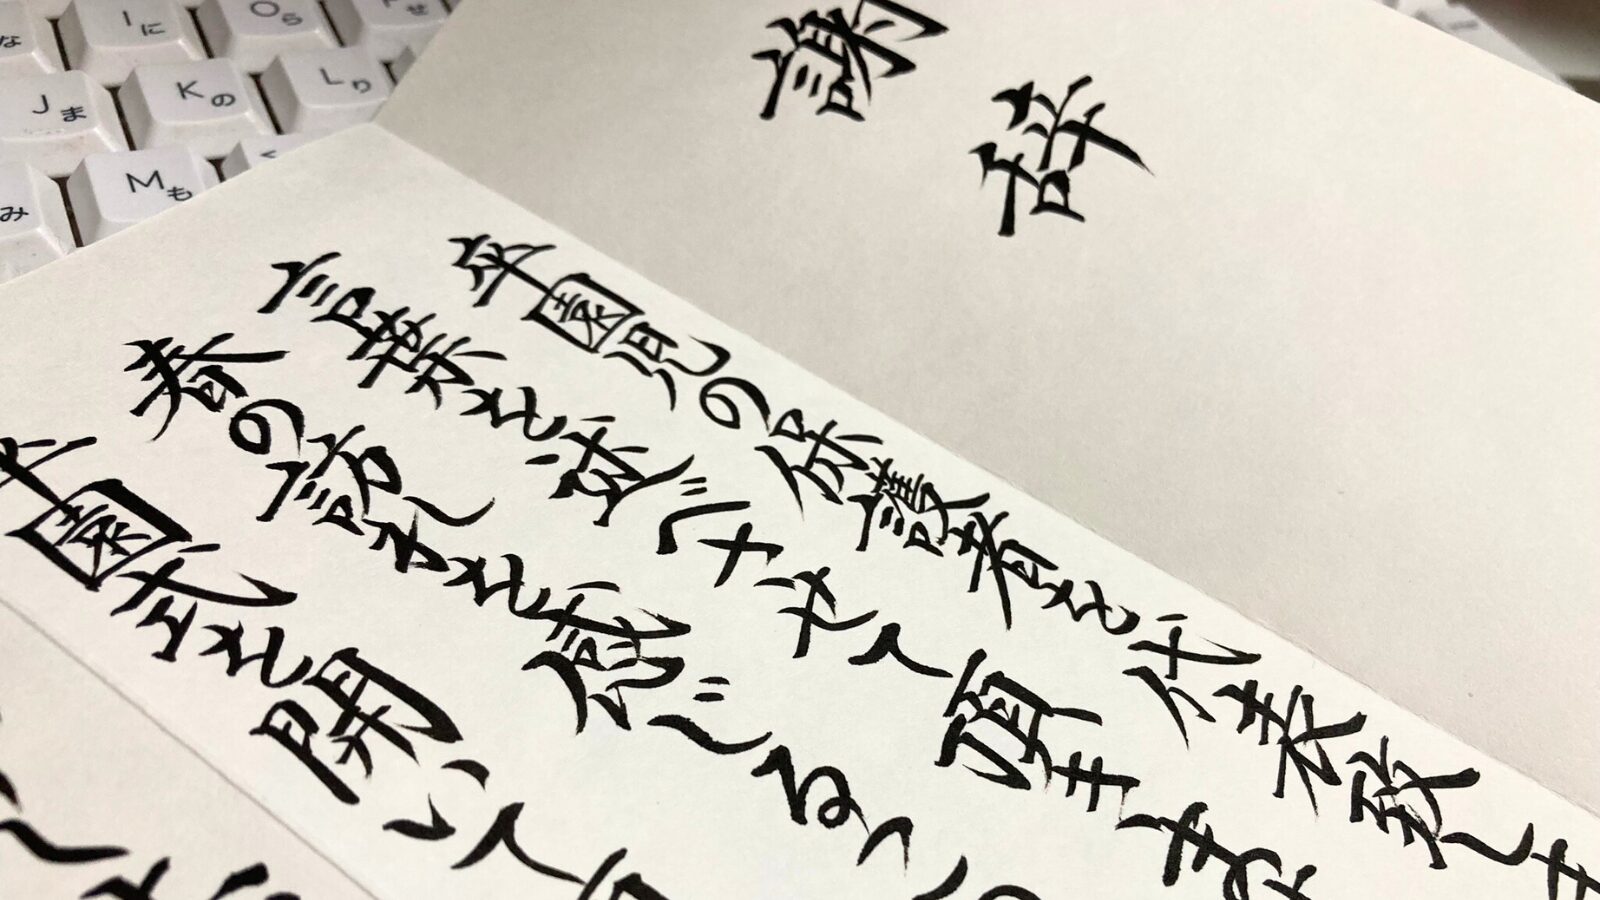 謝辞
卒園児の保護者を代表致しま
言葉を述べさせて頂きます
春の訪れを感じるこ
卒園式を開いて
な I に O ら せ
J ま K の L り
み M も